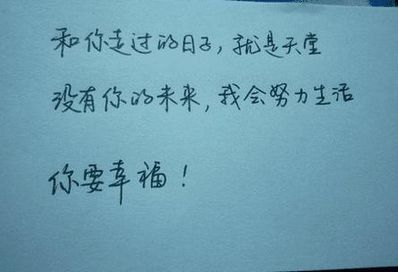 和你走过的日子，就是天堂
没有你的未来，我会努力生活
你要幸福！